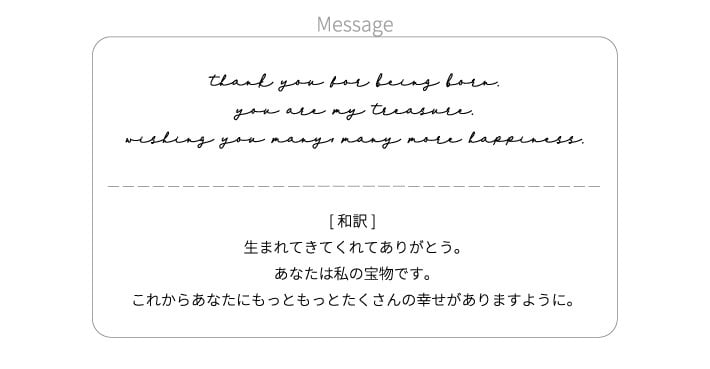 Message
thank you for being born.
you are my treasure.
wishing you many, many more happiness.
[ 和訳 ]
生まれてきてくれてありがとう。
あなたは私の宝物です。
これからあなたにもっともっとたくさんの幸せがありますように。